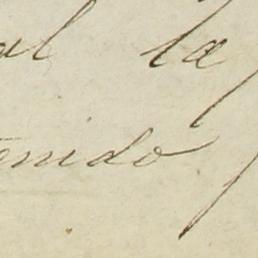 al la
enido